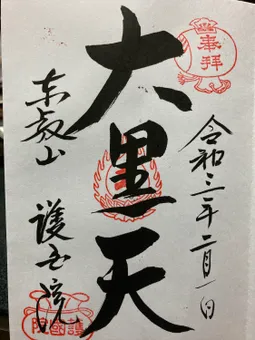 奉拝
令和三年二月一日
大黒天
東叡山
護国院
護國院